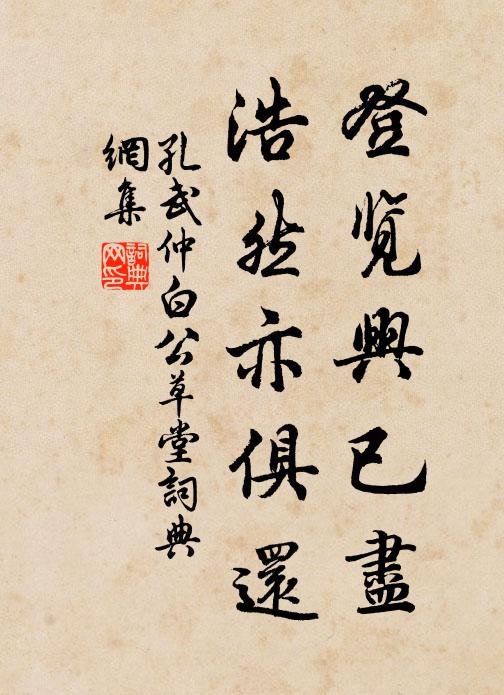 登览興已盡
浩然亦俱還
孔武仲白公草堂詞典
網集
詞典
网印